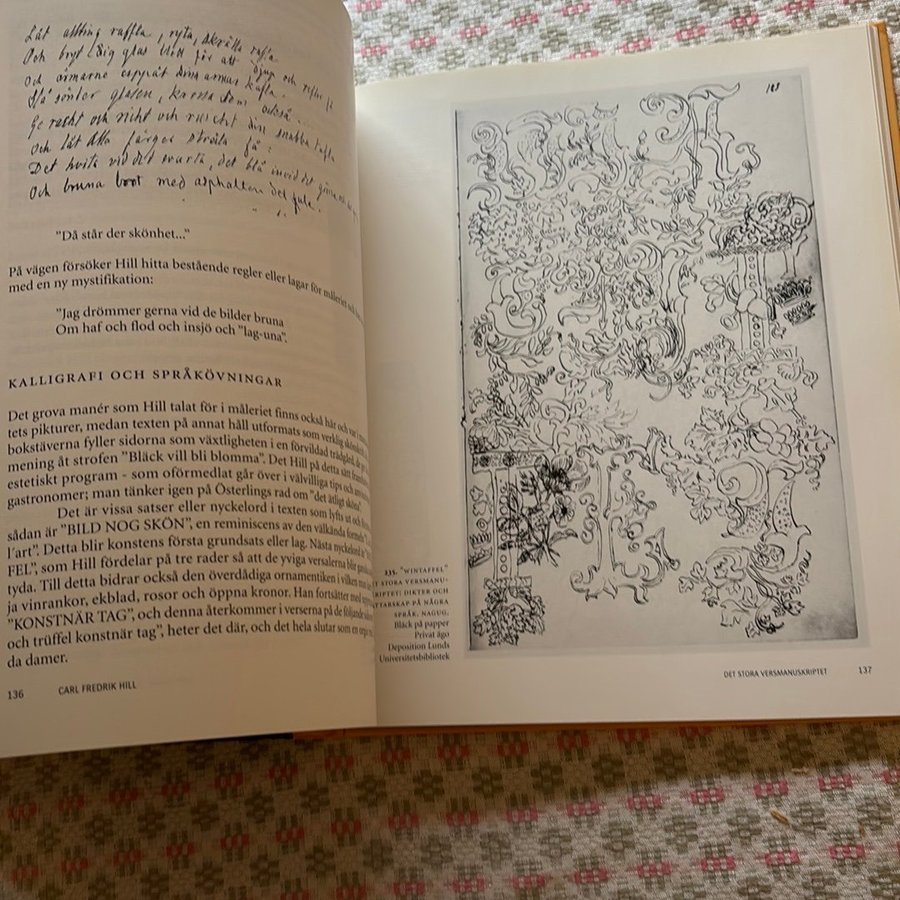 Låt allting raffla, ryta, skratta rafsa
Och bryt dig glas blott för att djup och
Och armarne espprät dina armar kafta.
Slå sönter glasen, krossa dem också.
Ge rackt och
och
din snabba tafla
Och låt åtta färger stråla på:
Det hvita vid det svarta, det blå invid det gröna
Och bruna bort med asphalten det fula.
"Då står der skönhet..."
På vägen försöker Hill hitta bestående regler eller lagar för måleriet
med en ny mystifikation:
"Jag drömmer gerna vid de bilder bruna
Om haf och flod och insjö och "lag-una".
KALLIGRAFI OCH SPRÅKÖVNINGAR
Det grova manér som Hill talat för i måleriet finns också här och var i
tets pikturer, medan texten på annat håll utformats som verklig
bokstäverna fyller sidorna som växtligheten i en förvildad trädgård,
mening åt strofen "Bläck vill bli blomma". Det Hill på detta sätt
estetiskt program - som oförmedlat går över i välvilliga tips och
gastronomer; man tänker igen på Österlings rad om "det ätligt sköna".
Det är vissa satser eller nyckelord i texten som lyfts ut och
sådan är "BILD NOG SKÖN", en reminiscens av den välkända formeln
l'art". Detta blir konstens första grundsats eller lag. Nästa nyckelord är
FEL", som Hill fördelar på tre rader så att de yviga versalerna blir
tyda. Till detta bidrar också den överdådiga ornamentiken i vilken man
ja vinrankor, ekblad, rosor och öppna kronor. Han fortsätter med
"KONSTNÄR TAG", och denna återkommer i verserna på de följande
och trüffel konstnär tag", heter det där, och det hela slutar som en
da damer.
136 CARL FREDRIK HILL
183
235. "WINTAFFEL"
STORA VERSMANU-
DIKTER OCH
PÅ NÅGRA
SPRÅK. NAGUG.
Bläck på papper
Privat ägo
Deposition Lunds
Universitetsbibliotek
DET STORA VERSMANUSKRIPTET 137